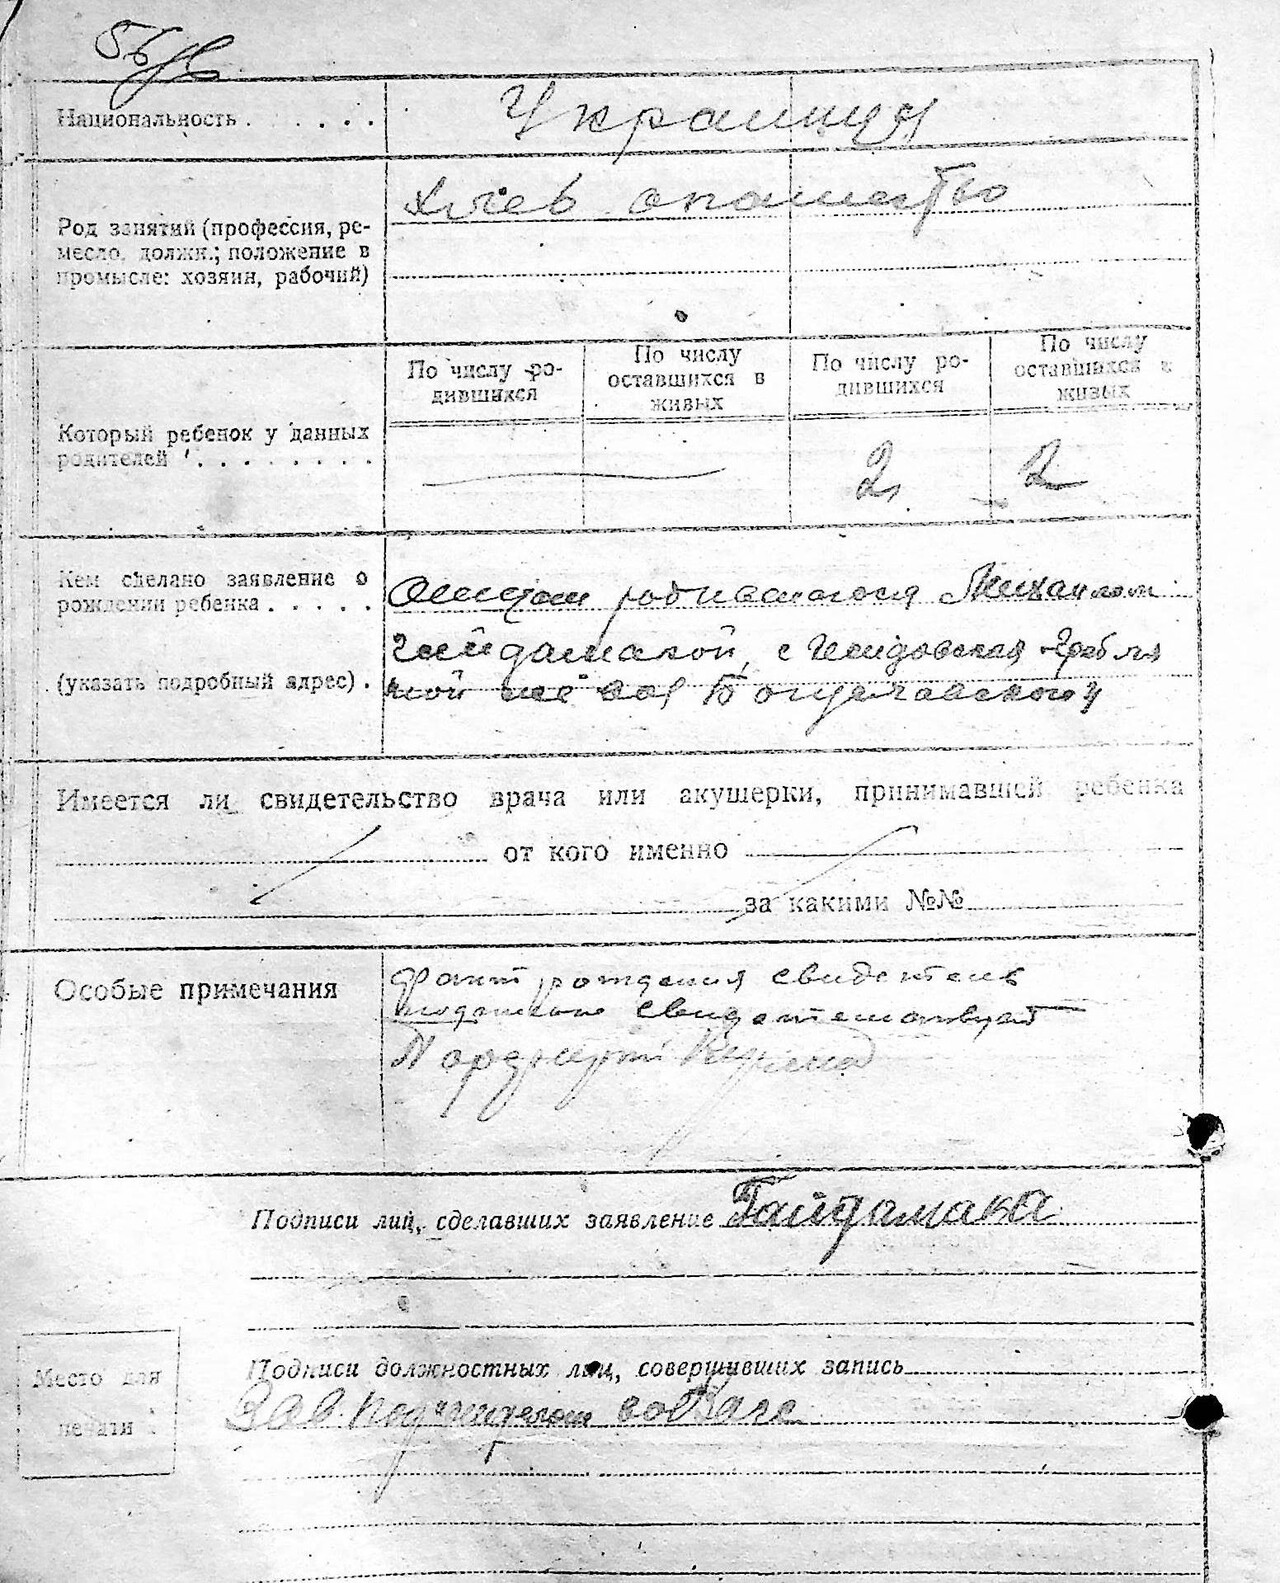 56
Национальность . . . . . .
Украинцы
Род занятий (профессия, ре-
месло, должн.; положение в
промысле: хозяин, рабочий)
Хлебопашество
По числу ро-
дившихся
По числу
оставшихся в
живых
По числу ро-
дившихся
По числу
оставшихся в
живых
Который ребенок у данных
родителей . . . . . . . .
2
2
Кем сделано заявление о
рождении ребенка . . . . .
(указать подробный адрес) .
родившагося Михаилом
Гайдамакой, с
Богучарского у
Имеется ли свидетельство врача или акушерки, принимавшей ребенка
от кого именно
за какими №№
Особые примечания
факт рождения свидетель
свидетельствует
Подписи лиц, сделавших заявление Гайдамака
Место для
печати
Подписи должностных лиц, совершивших запись
Зав.